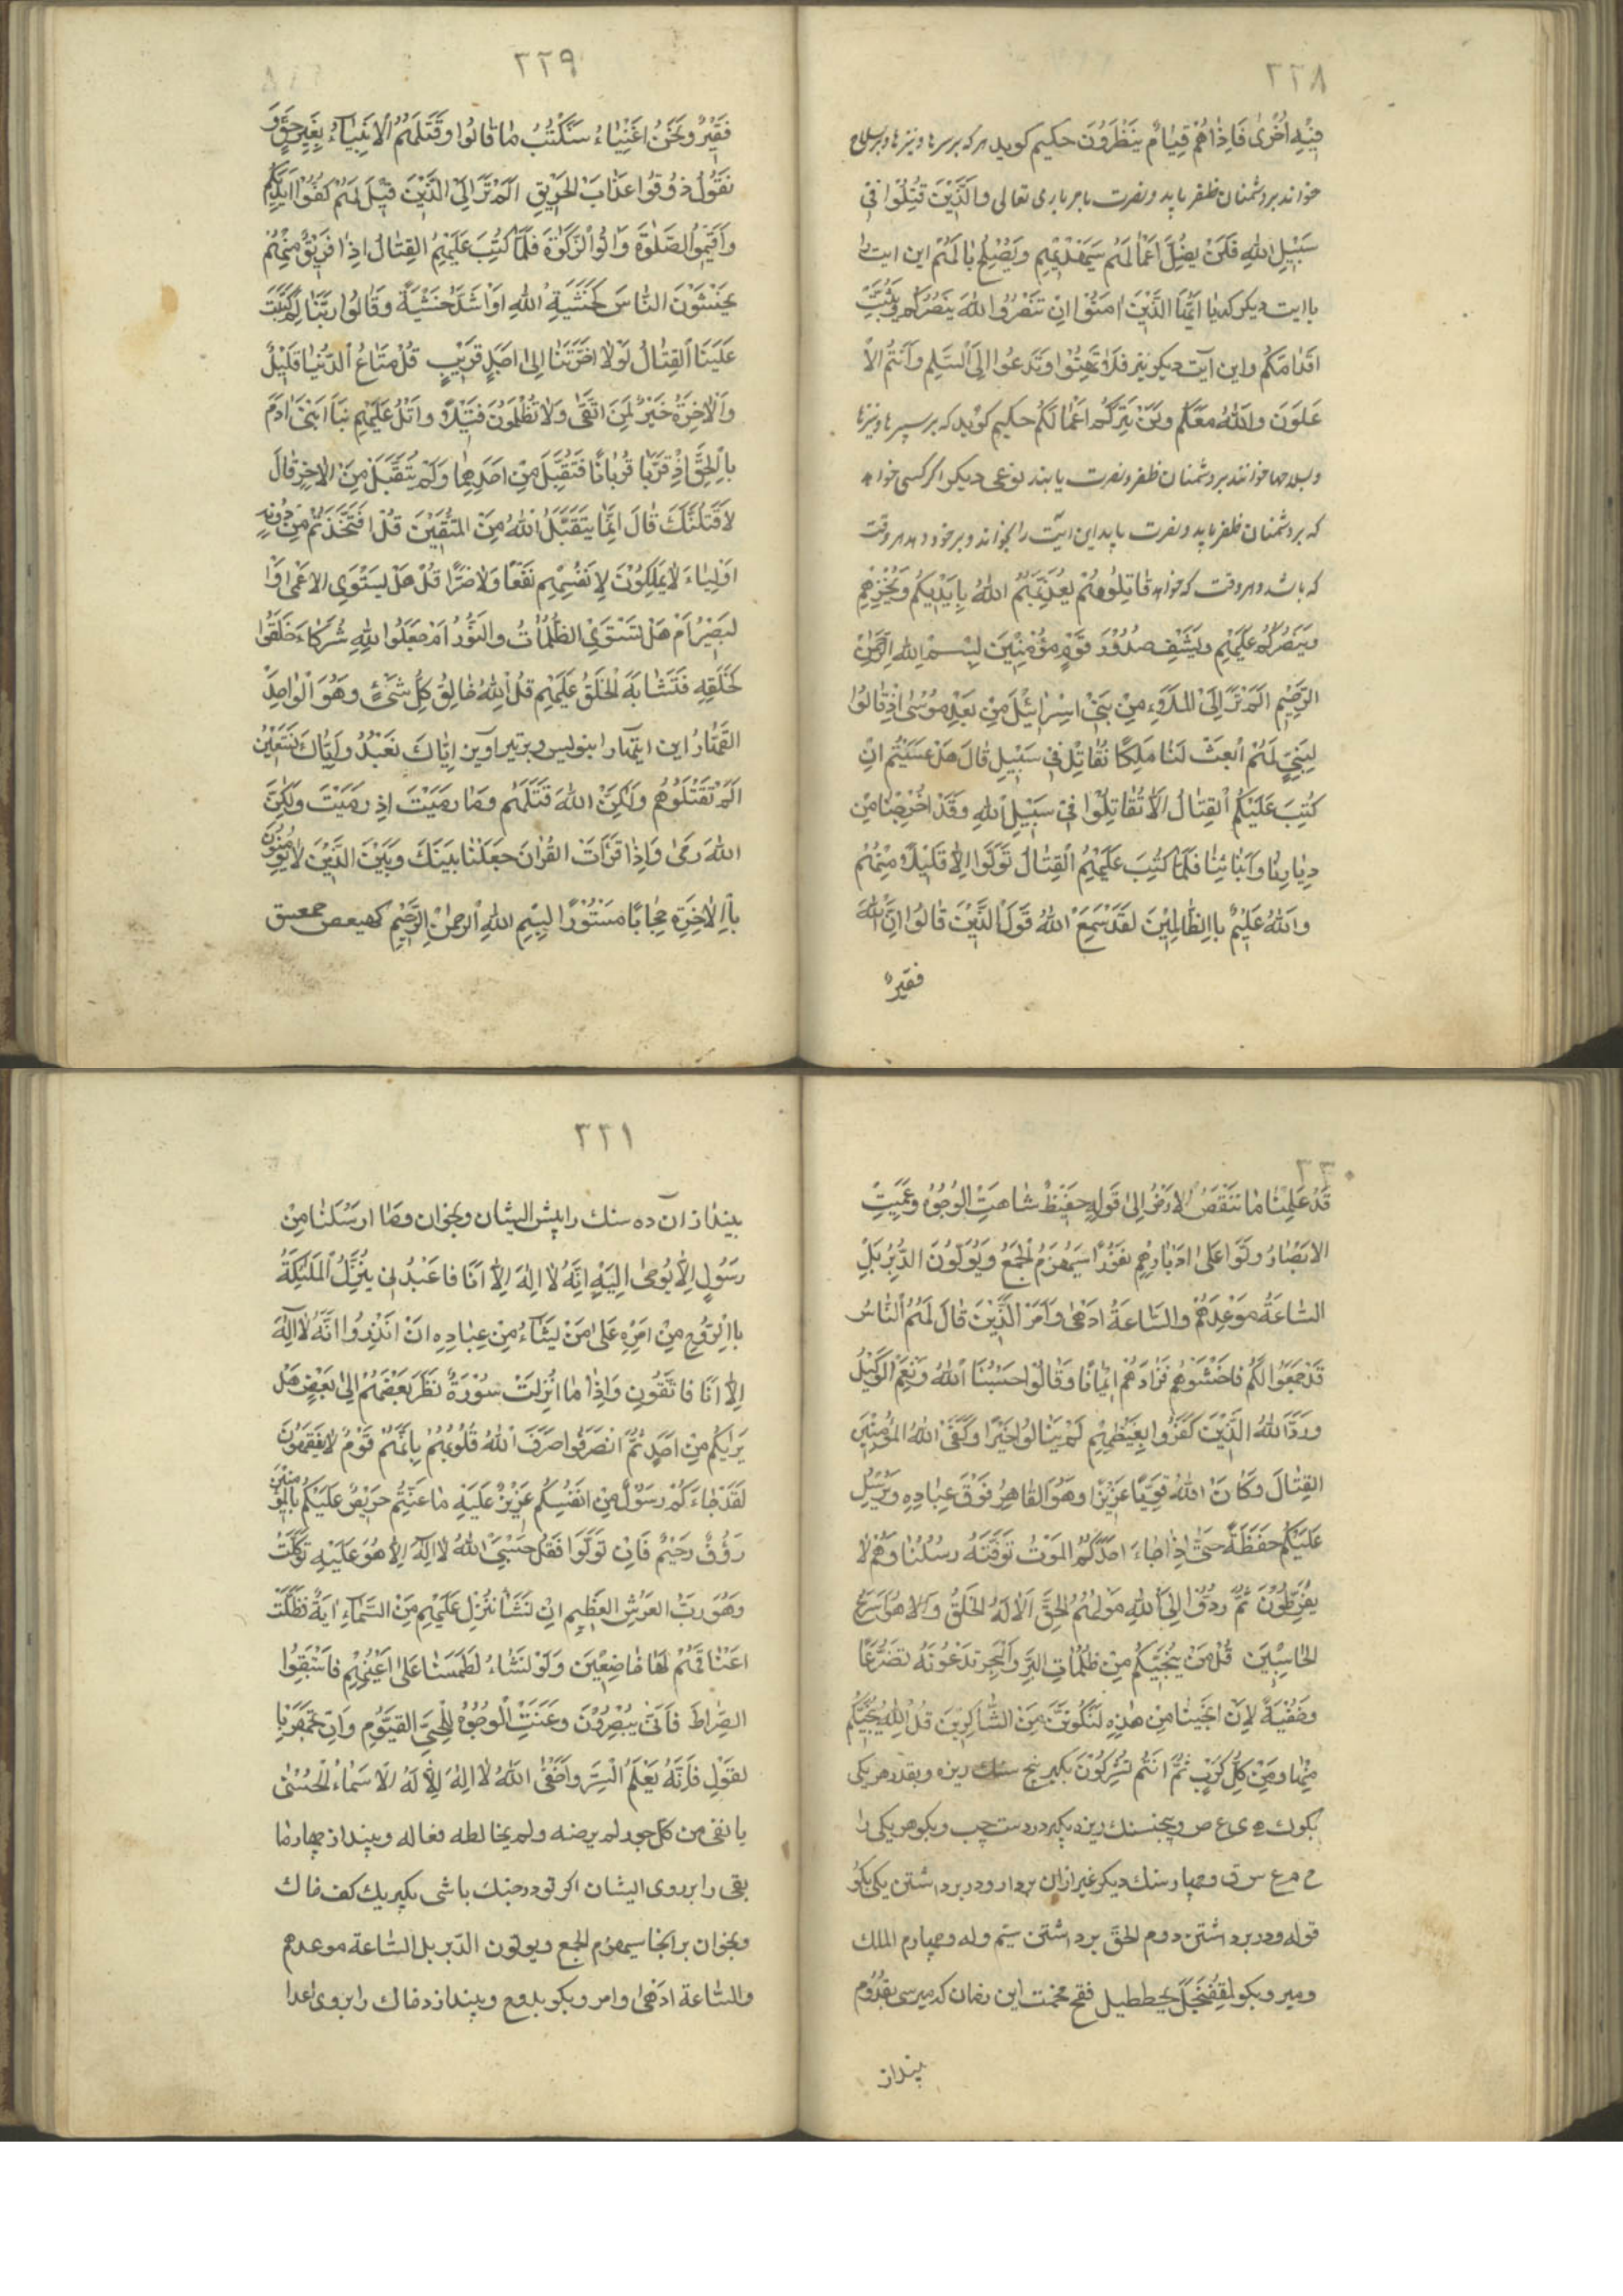 ٢٢٨
فِيْهِ اُخْرٰى فَاِذَا هُمْ قِيَامٌ يَنْظُرُوْنَ حکیم کوید هرکه بر سرها و نیزها و بر سلاح
خواند بر دشمنان ظفر یابد و نصرت بامر باری تعالی وَالَّذِيْنَ قُتِلُوْا فِيْ
سَبِيْلِ اللهِ فَلَنْ يُضِلَّ اَعْمَالَهُمْ سَيَهْدِيْهِمْ وَيُصْلِحُ بَالَهُمْ این ایت را
باایت دیکر که يَا اَيُّهَا الَّذِيْنَ اٰمَنُوْا اِنْ تَنْصُرُوا اللهَ يَنْصُرْكُمْ وَيُثَبِّتْ
اَقْدَامَكُمْ واین آیت دیکر نیز فَلَا تَهِنُوْا وَتَدْعُوْا اِلَى السَّلْمِ وَاَنْتُمُ الْاَ
عْلَوْنَ وَاللهُ مَعَكُمْ وَلَنْ يَتِرَكُمْ اَعْمَالَكُمْ حکیم کوید که بر سپرها و نیزها
و سلاحها خوانند بر دشمنان ظفر و نصرت یابند نوعی دیکر اکر کسی خواهد
که بر دشمنان ظفر یابد و نصرت یابد این ایت را بخواند و بر خود دمد هر وقت
که باشد و هر وقت که خواهد قَاتِلُوْهُمْ يُعَذِّبْهُمُ اللهُ بِاَيْدِيْكُمْ وَيُخْزِهِمْ
وَيَنْصُرْكُمْ عَلَيْهِمْ وَيَشْفِ صُدُوْرَ قَوْمٍ مُؤْمِنِيْنَ بِسْمِ اللهِ الرَّحْمٰنِ
الرَّحِيْمِ اَلَمْ تَرَ اِلَى الْمَلَاءِ مِنْ بَنِيْ اِسْرَائِيْلَ مِنْ بَعْدِ مُوْسٰى اِذْ قَالُوْا
لِنَبِيٍّ لَهُمُ ابْعَثْ لَنَا مَلِكًا نُقَاتِلْ فِيْ سَبِيْلِ قَالَ هَلْ عَسَيْتُمْ اِنْ
كُتِبَ عَلَيْكُمُ الْقِتَالُ اَلَّا تُقَاتِلُوْا فِيْ سَبِيْلِ اللهِ وَقَدْ اُخْرِجْنَا مِنْ
دِيَارِنَا وَاَبْنَائِنَا فَلَمَّا كُتِبَ عَلَيْهِمُ الْقِتَالُ تَوَلَّوْا اِلَّا قَلِيْلًا مِنْهُمْ
وَاللهُ عَلِيْمٌ بِاالظَّالِمِيْنَ لَقَدْ سَمِعَ اللهُ قَوْلَ الَّذِيْنَ قَالُوْا اِنَّ اللهَ
فقیرٌ
٢٢٩
فَقِيْرٌ وَنَحْنُ اَغْنِيَاءُ سَنَكْتُبُ مَا قَالُوْا وَقَتْلَهُمُ الْاَنْبِيَاءَ بِغَيْرِ حَقٍّ وَ
نَقُوْلُ ذُوْقُوْا عَذَابَ الْحَرِيْقِ اَلَمْ تَرَ اِلَى الَّذِيْنَ قِيْلَ لَهُمْ كُفُّوْا اَيْدِيَكُمْ
وَاَقِيْمُوا الصَّلٰوةَ وَاٰتُوا الزَّكٰوةَ فَلَمَّا كُتِبَ عَلَيْهِمُ الْقِتَالُ اِذَا فَرِيْقٌ مِنْهُمْ
يَخْشَوْنَ النَّاسَ كَخَشْيَةِ اللهِ اَوْ اَشَدَّ خَشْيَةً وَقَالُوْا رَبَّنَا لِمَ كَتَبْتَ
عَلَيْنَا الْقِتَالَ لَوْلَا اَخَّرْتَنَا اِلٰى اَجَلٍ قَرِيْبٍ قُلْ مَتَاعُ الدُّنْيَا قَلِيْلٌ
وَالْاٰخِرَةُ خَيْرٌ لِمَنِ اتَّقٰى وَلَا تُظْلَمُوْنَ فَتِيْلًا وَاتْلُ عَلَيْهِمْ نَبَاَ ابْنَيْ اٰدَمَ
بِالْحَقِّ اِذْ قَرَّبَا قُرْبَانًا فَتُقُبِّلَ مِنْ اَحَدِهِمَا وَلَمْ يُتَقَبَّلْ مِنَ الْاٰخَرِ قَالَ
لَاَقْتُلَنَّكَ قَالَ اِنَّمَا يَتَقَبَّلُ اللهُ مِنَ الْمُتَّقِيْنَ قُلْ اَفَتَّخَذْتُمْ مِنْ دُوْنِهِ
اَوْلِيَاءَ لَا يَمْلِكُوْنَ لِاَنْفُسِهِمْ نَفْعًا وَلَا ضَرًّا قُلْ هَلْ يَسْتَوِي الْاَعْمٰى وَا
لْبَصِيْرُ اَمْ هَلْ تَسْتَوِي الظُّلُمَاتُ وَالنُّوْرُ اَمْ جَعَلُوْا لِلّٰهِ شُرَكَاءَ خَلَقُوْا
كَخَلْقِهِ فَتَشَابَهَ الْخَلْقُ عَلَيْهِمْ قُلِ اللهُ خَالِقُ كُلِّ شَيْءٍ وَهُوَ الْوَاحِدُ
الْقَهَّارُ این ایتهارا بنویس و بر تیر آوین اِيَّاكَ نَعْبُدُ وَاِيَّاكَ نَسْتَعِيْنُ
اَلَمْ تَقْتُلُوْهُمْ وَلٰكِنَّ اللهَ قَتَلَهُمْ وَمَا رَمَيْتَ اِذْ رَمَيْتَ وَلٰكِنَّ
اللهَ رَمٰى وَاِذَا قَرَاْتَ الْقُرْاٰنَ جَعَلْنَا بَيْنَكَ وَبَيْنَ الَّذِيْنَ لَا يُؤْمِنُوْنَ
بِاالْاٰخِرَةِ حِجَابًا مَسْتُوْرًا بِسْمِ اللهِ الرَّحْمٰنِ الرَّحِيْمِ كهيعص حمعسق
٢٣٠
قَدْ عَلِمْنَا مَا تَنْقُصُ الْاَرْضُ اِلٰى قَوْلِهِ حَفِيْظٌ شَاهَتِ الْوُجُوْهُ وَعَمِيَتِ
الْاَبْصَارُ وَلَّوْا عَلٰى اَدْبَارِهِمْ نُفُوْرًا سَيُهْزَمُ الْجَمْعُ وَيُوَلُّوْنَ الدُّبُرَ بَلِ
السَّاعَةُ مَوْعِدُهُمْ وَالسَّاعَةُ اَدْهٰى وَاَمَرُّ الَّذِيْنَ قَالَ لَهُمُ النَّاسُ
قَدْ جَمَعُوْا لَكُمْ فَاخْشَوْهُمْ فَزَادَهُمْ اِيْمَانًا وَقَالُوْا حَسْبُنَا اللهُ وَنِعْمَ الْوَكِيْلُ
وَرَدَّ اللهُ الَّذِيْنَ كَفَرُوْا بِغَيْظِهِمْ لَمْ يَنَالُوْا خَيْرًا وَكَفَى اللهُ الْمُؤْمِنِيْنَ
الْقِتَالَ وَكَانَ اللهُ قَوِيًّا عَزِيْزًا وَهُوَ الْقَاهِرُ فَوْقَ عِبَادِهِ وَيُرْسِلُ
عَلَيْكُمْ حَفَظَةً حَتّٰى اِذَا جَاءَ اَحَدَكُمُ الْمَوْتُ تَوَفَّتْهُ رُسُلُنَا وَهُمْ لَا
يُفَرِّطُوْنَ ثُمَّ رُدُّوْا اِلَى اللهِ مَوْلٰهُمُ الْحَقِّ اَلَا لَهُ الْخَلْقُ وَالا هُوَ اَسْرَعُ
الْحَاسِبِيْنَ قُلْ مَنْ يُنَجِّيْكُمْ مِنْ ظُلُمَاتِ الْبَرِّ وَالْبَحْرِ تَدْعُوْنَهُ تَضَرُّعًا
وَخُفْيَةً لَاِنْ اَنْجَيْنَا مِنْ هٰذِهِ لَنَكُوْنَنَّ مِنَ الشَّاكِرِيْنَ قُلِ اللهُ يُنَجِّيْكُمْ
مِنْهَا وَمِنْ كُلِّ كَرْبٍ ثُمَّ اَنْتُمْ تُشْرِكُوْنَ بکیر پنج سنك ریزه و بقدر هر یکی
بکو ك ه ی ع ص و پنج سنك ریزه بکیر در دست چپ و بکو هر یکی را
ح م ع س ق و چهار سنك دیکر غیر ازان بردار و در برداشتن یکی بکو
قوله و در برداشتن دوم الحق برداشتن سیم وله و چهارم الملك
این زمان که میرسی بقدوم
بینداز
٢٣١
بینداز آن ده سنك را پیش ایشان و بخوان وَمَا اَرْسَلْنَا مِنْ
رَسُوْلٍ اِلَّا يُوْحٰى اِلَيْهِ اِنَّهُ لَا اِلٰهَ اِلَّا اَنَا فَاعْبُدُنِيْ يُنَزِّلُ الْمَلٰئِكَةَ
بِاالرُّوْحِ مِنْ اَمْرِهِ عَلٰى مَنْ يَشَاءُ مِنْ عِبَادِهِ اَنْ اَنْذِرُوْا اَنَّهُ لَا اِلٰهَ
اِلَّا اَنَا فَاتَّقُوْنِ وَاِذَا مَا اُنْزِلَتْ سُوْرَةٌ نَظَرَ بَعْضُهُمْ اِلٰى بَعْضٍ هَلْ
يَرٰيكُمْ مِنْ اَحَدٍ ثُمَّ انْصَرَفُوْا صَرَفَ اللهُ قُلُوْبَهُمْ بِاَنَّهُمْ قَوْمٌ لَا يَفْقَهُوْنَ
لَقَدْ جَاءَكُمْ رَسُوْلٌ مِنْ اَنْفُسِكُمْ عَزِيْزٌ عَلَيْهِ مَا عَنِتُّمْ حَرِيْصٌ عَلَيْكُمْ بِالْمُؤْمِنِيْنَ
رَؤُفٌ رَحِيْمٌ فَاِنْ تَوَلَّوْا فَقُلْ حَسْبِيَ اللهُ لَا اِلٰهَ اِلَّا هُوَ عَلَيْهِ تَوَكَّلْتُ
وَهُوَ رَبُّ الْعَرْشِ الْعَظِيْمِ اِنْ نَشَاْ نُنَزِّلْ عَلَيْهِمْ مِنَ السَّمَاءِ اٰيَةً فَظَلَّتْ
اَعْنَاقُهُمْ لَهَا خَاضِعِيْنَ وَلَوْ نَشَاءُ لَطَمَسْنَا عَلٰى اَعْيُنِهِمْ فَاسْتَبَقُوْا
الصِّرَاطَ فَاَنّٰى يُبْصِرُوْنَ وَعَنَتِ الْوُجُوْهُ لِلْحَيِّ الْقَيُّوْمِ وَاِنْ تَجْهَرْ بِا
لْقَوْلِ فَاِنَّهُ يَعْلَمُ السِّرَّ وَاَخْفٰى اللهُ لَا اِلٰهَ اِلَّا هُوَ لَهُ الْاَسْمَاءُ الْحُسْنٰى
یا نقی من کل جور لم یرضه ولم یخالطه فعاله و بینداز چهار ما
بقی را بر روی ایشان اکر تو در جنك باشی بکیر یك کف خاك
و بخوان بر انجا سیهزم الجمع ویولون الدّبر بل السّاعة موعدهم
والسّاعة ادهٰی وامر و بکو و بینداز خاك را بر روی اعدا